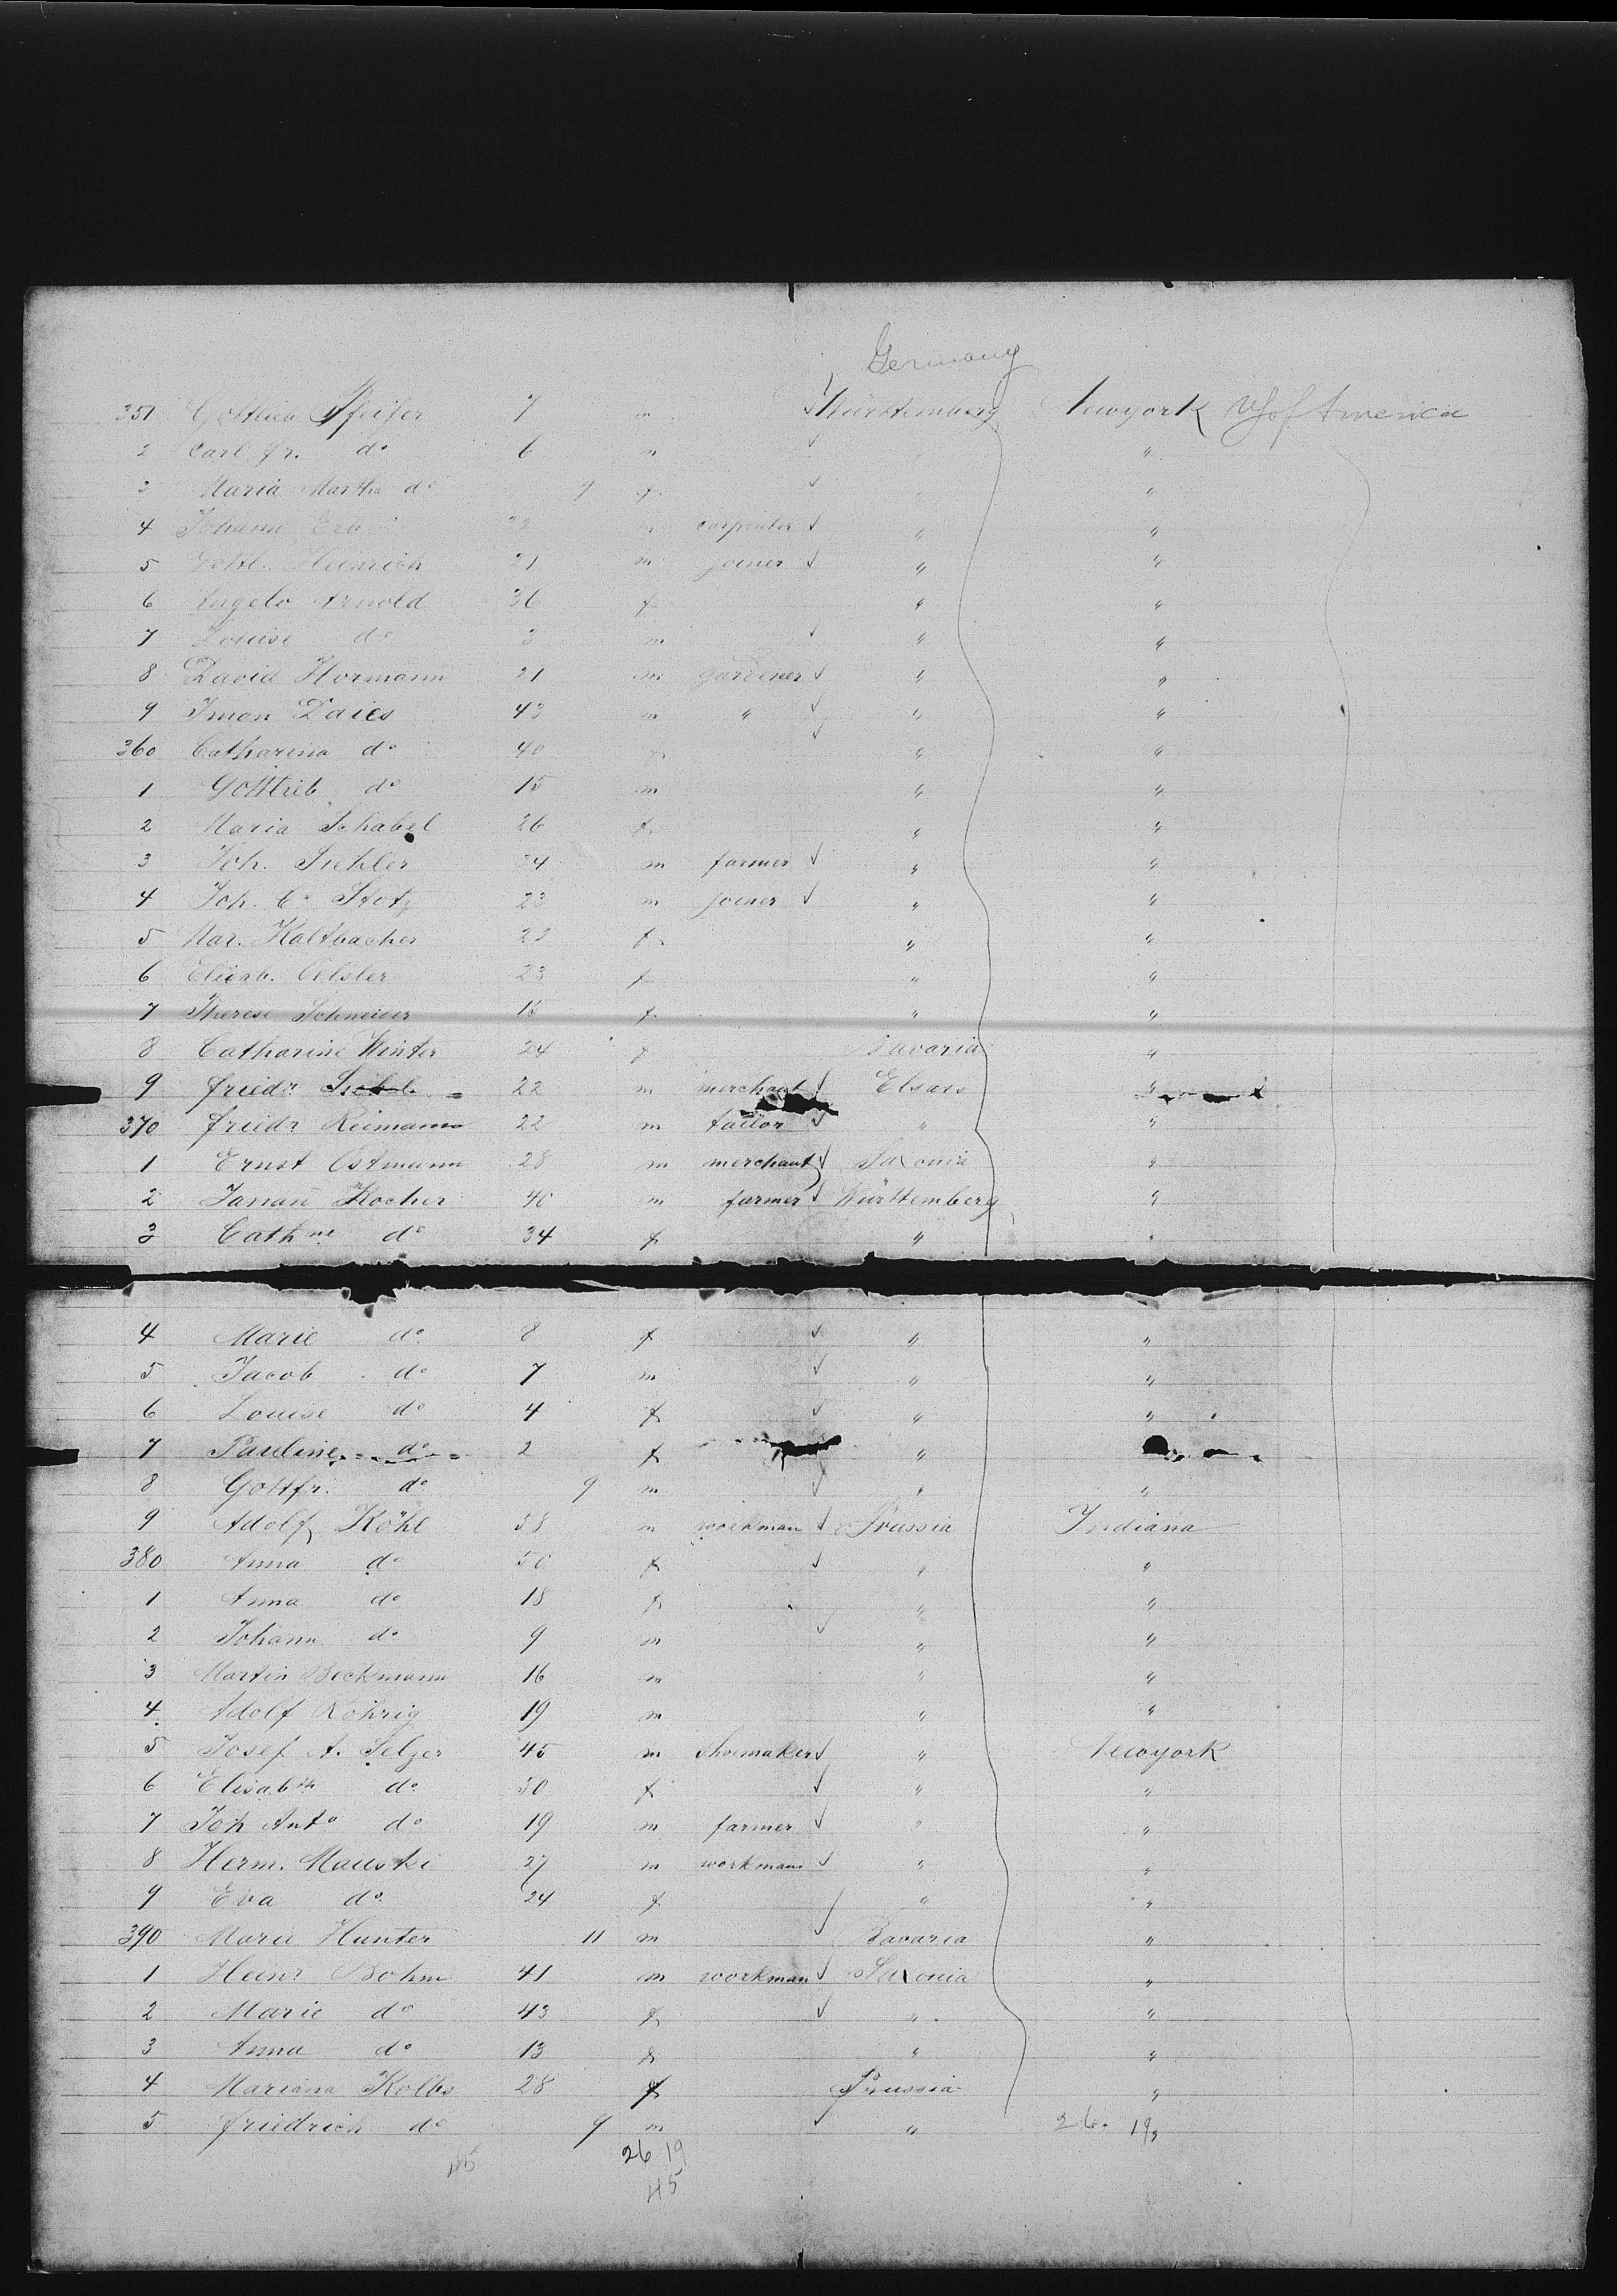 Germany
351 Gottlieb Pfeifer 7 m Württemberg Newyork US of America
2 Carl Fr. do 6 m "
3 Maria Martha do 9 f "
4 Johann Erb m carpenter " "
5 Gottl. Heinrich 21 m joiner " "
6 Angelo Arnold 36 f " "
7 Louise do 3 m " "
8 David Hormann 21 m gardener " "
9 Iman Daies 43 m " " "
360 Catharina do 40 f " "
1 Gottlieb do 15 m " "
2 Maria Schabel 26 f " "
3 Joh. Siehler 24 m farmer " "
4 Joh. C. Stotz 23 m joiner " "
5 Mar. Kaltbacher 22 f " "
6 Elisab. Oelsler 23 f " "
7 Therese Schneider 15 f " "
8 Catharine Winter 24 f Bavaria "
9 Friedr. 22 m merchant Elsass "
370 Friedr Reimann 22 m tailor " "
1 Ernst Ostmann 28 m merchant Saxonia "
2 Kocher 40 m farmer Württemberg "
3 Cathne do 34 f " "
4 Marie do 8 f " "
5 Jacob do 7 m " "
6 Louise do 4 f " "
7 Pauline do 2 f "
8 Gottfr. do 9 m " "
9 Adolf Köhl 58 m workman Prussia Indiana
380 Anna do 50 f " "
1 Anna do 18 f " "
2 Johann do 9 m " "
3 Martin Beckmann 16 m " "
4 Adolf Röhrig 19 m " "
5 Josef A. Selzer 45 m Shoemaker " Newyork
6 Elisabth do 50 f " "
7 Joh Anto do 19 m farmer " "
8 Herm. Mauski 27 m workman " "
9 Eva do 24 f " "
390 Marie Hunter 11 m Bavaria "
1 Heinr Bohm 41 m workman Saxonia "
2 Marie do 43 f " "
3 Anna do 13 f " "
4 Mariana Kolbs 28 f Prussia "
5 Friedrich do 9 m " 26. 19
45 26 19
45